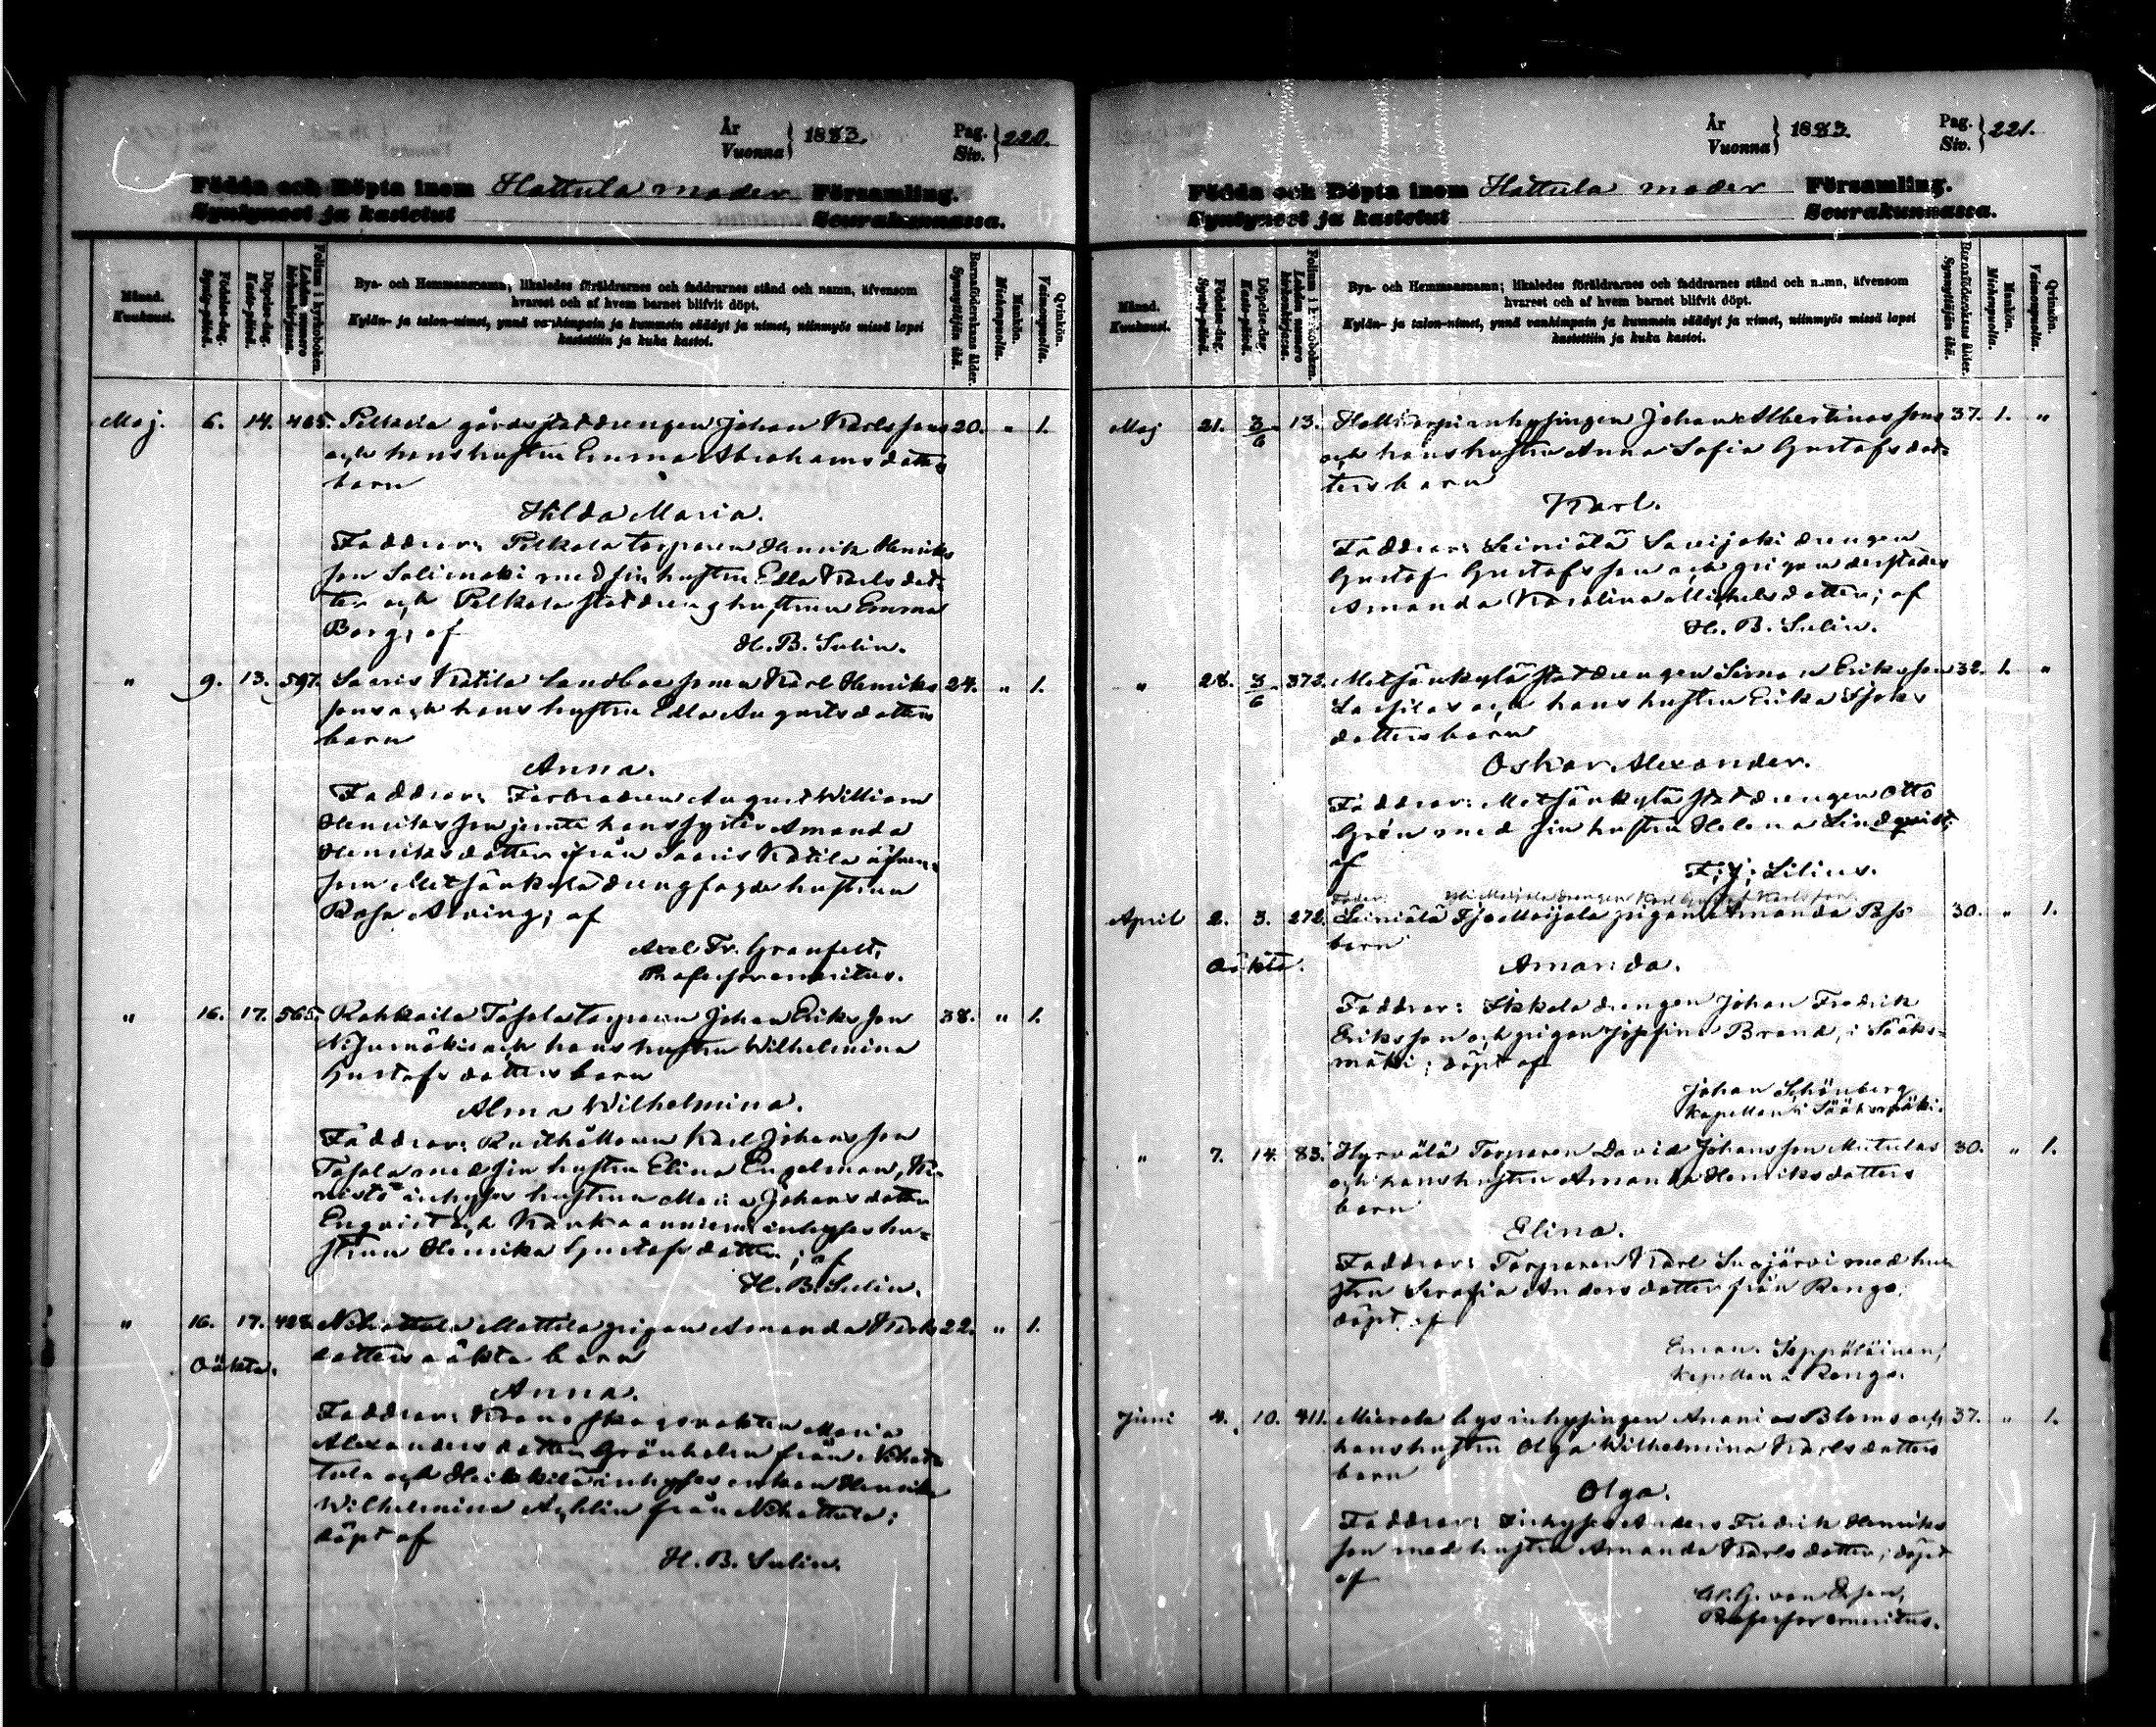 År
Vuonna } 1883.
Pag.
Siv. } 220.
Födda och Döpta inom Hattula moder Församling.
Syntyneet ja kastetut Seurakunnassa.
Månad.
Kuukausi.
Födelse-dag.
Synty-päivä.
Döpelse-dag.
Kaste-päivä.
Folium i kyrkoboken.
Lehden numero kirkonkirjassa.
Bya- och Hemmansnamn; likaledes föräldrarnes och faddrarnes stånd och namn, äfvensom
hvarest och af hvem barnet blifvit döpt.
Kylän- ja talon-nimet, ynnä vanhimpain ja kummein säädyt ja nimet, niinmyös missä lapsi
kastettiin ja kuka kastoi.
Barnföderskans ålder.
Synnyttäjän ikä.
Mankön.
Miehenpuolia.
Qvinkön.
Vaimonpuolia.
Maj. 6. 14. 465. Pelkola gårds statdrengen Johan Karlssons 20. " 1.
och hans hustru Emma Abrahamsdotters
barn
Hilda Maria.
Faddrar: Pelkola torparen Henrik Henriks
son Salimäki med sin hustru Edla Karlsdot-
ter och Pelkola statdrenghustrun Emma
Borg; af
H. B. Sulin.
" 9. 13. 597. Saaris Katila landbosonen Karl Henriks 24. " 1.
sons och hans hustru Edla Augustsdotters
barn
Anna.
Faddrar: Farbrodren August William
Henriksson jemte hans syster Amanda
Henriksdotter från Saaris Katila äfven-
som Metsänkylä drengfogde hustrun
Rosa Alving; af
Axel Fr. Granfelt,
Professor emeritus.
" 16. 17. 565. Rahkoila Tasola torparen Johan Eriksson 38. " 1.
och hans hustru Wilhelmina
Gustafsdotters barn
Alma Wilhelmina.
Faddrar: Rusthållaren Karl Johansson
Tasola med sin hustru Elina Engelman,
inhyses hustrun Maria Johansdotter
Enqvist och inhyses hu-
strun Henrika Gustafsdotter; af
H. B. Sulin.
" 16. 17. 428. Nihattula Mattila pigan Amanda Karls 22. " 1.
Oäkta. dotters oäkta barn
Anna.
Faddrar: Krono skogsvakten Maria
Alexandersdotter Grönholm från Nihat-
tula och Heikkilä inhyses enkan Henrika
Wilhelmina från Nihattula;
döpt af
H. B. Sulin.
År
Vuonna } 1883.
Pag.
Siv. } 221.
Födda och Döpta inom Hattula moder Församling.
Syntyneet ja kastetut Seurakunnassa.
Månad.
Kuukausi.
Födelse-dag.
Synty-päivä.
Döpelse-dag.
Kaste-päivä.
Folium i kyrkoboken.
Lehden numero kirkonkirjassa.
Bya- och Hemmansnamn; likaledes föräldrarnes och faddrarnes stånd och namn, äfvensom
hvarest och af hvem barnet blifvit döpt.
Kylän- ja talon-nimet, ynnä vanhimpain ja kummein säädyt ja nimet, niinmyös missä lapsi
kastettiin ja kuka kastoi.
Barnföderskans ålder.
Synnyttäjän ikä.
Mankön.
Miehenpuolia.
Qvinkön.
Vaimonpuolia.
Maj 21. 3/6 13. inhysingen Johan Albertinassons 37. 1. "
och hans hustru Anna Sofia Gustafsdot-
ters barn
Karl.
Faddrar: Leiniälä Savijoki drengen
Gustaf Gustafsson och pigan derstädes
Amanda Karolina Michelsdotter; af
H. B. Sulin.
" 28. 3/6 372. Metsänkylä statdrengen Simon Eriksson 32. 1. "
och hans hustru Erika
dotters barn
Oskar Alexander.
Faddrar: Metsänkylä statdrengen Otto
Grön med sin hustru Helena Lindqvist;
af
F. J. Lilius.
Fader: drengen Karl Gustaf Karlsson.
April 2. 3. 272. Leiniälä pigan Amanda 30. " 1.
barn
Oäkta. Amanda.
Faddrar: drengen Johan Fredrik
Eriksson och pigan Josefina Brand, i Sääks-
mäki; döpt af
Johan Schönberg
Kapellan i Sääksmäki.
" 7. 14. 83. Hyrvälä Torparen David Johansson 30. " 1.
och hans hustru Amanda Henriksdotters
barn
Elina.
Faddrar: Torparen Karl med hu
stru Serafia Andersdotter från Rengo;
döpt af
Eman. Seppäläinen,
Kapellan i Rengo.
Juni 4. 10. 411. Mierola bys inhysingen Ananias Bloms och 37. " 1.
hans hustru Olga Wilhelmina Karlsdotters
barn
Olga.
Faddrar: Inhyses Anders Fredrik Henriks
son med hustru Amanda Karlsdotter; döpt
af
von Essen,
Professor emeritus.